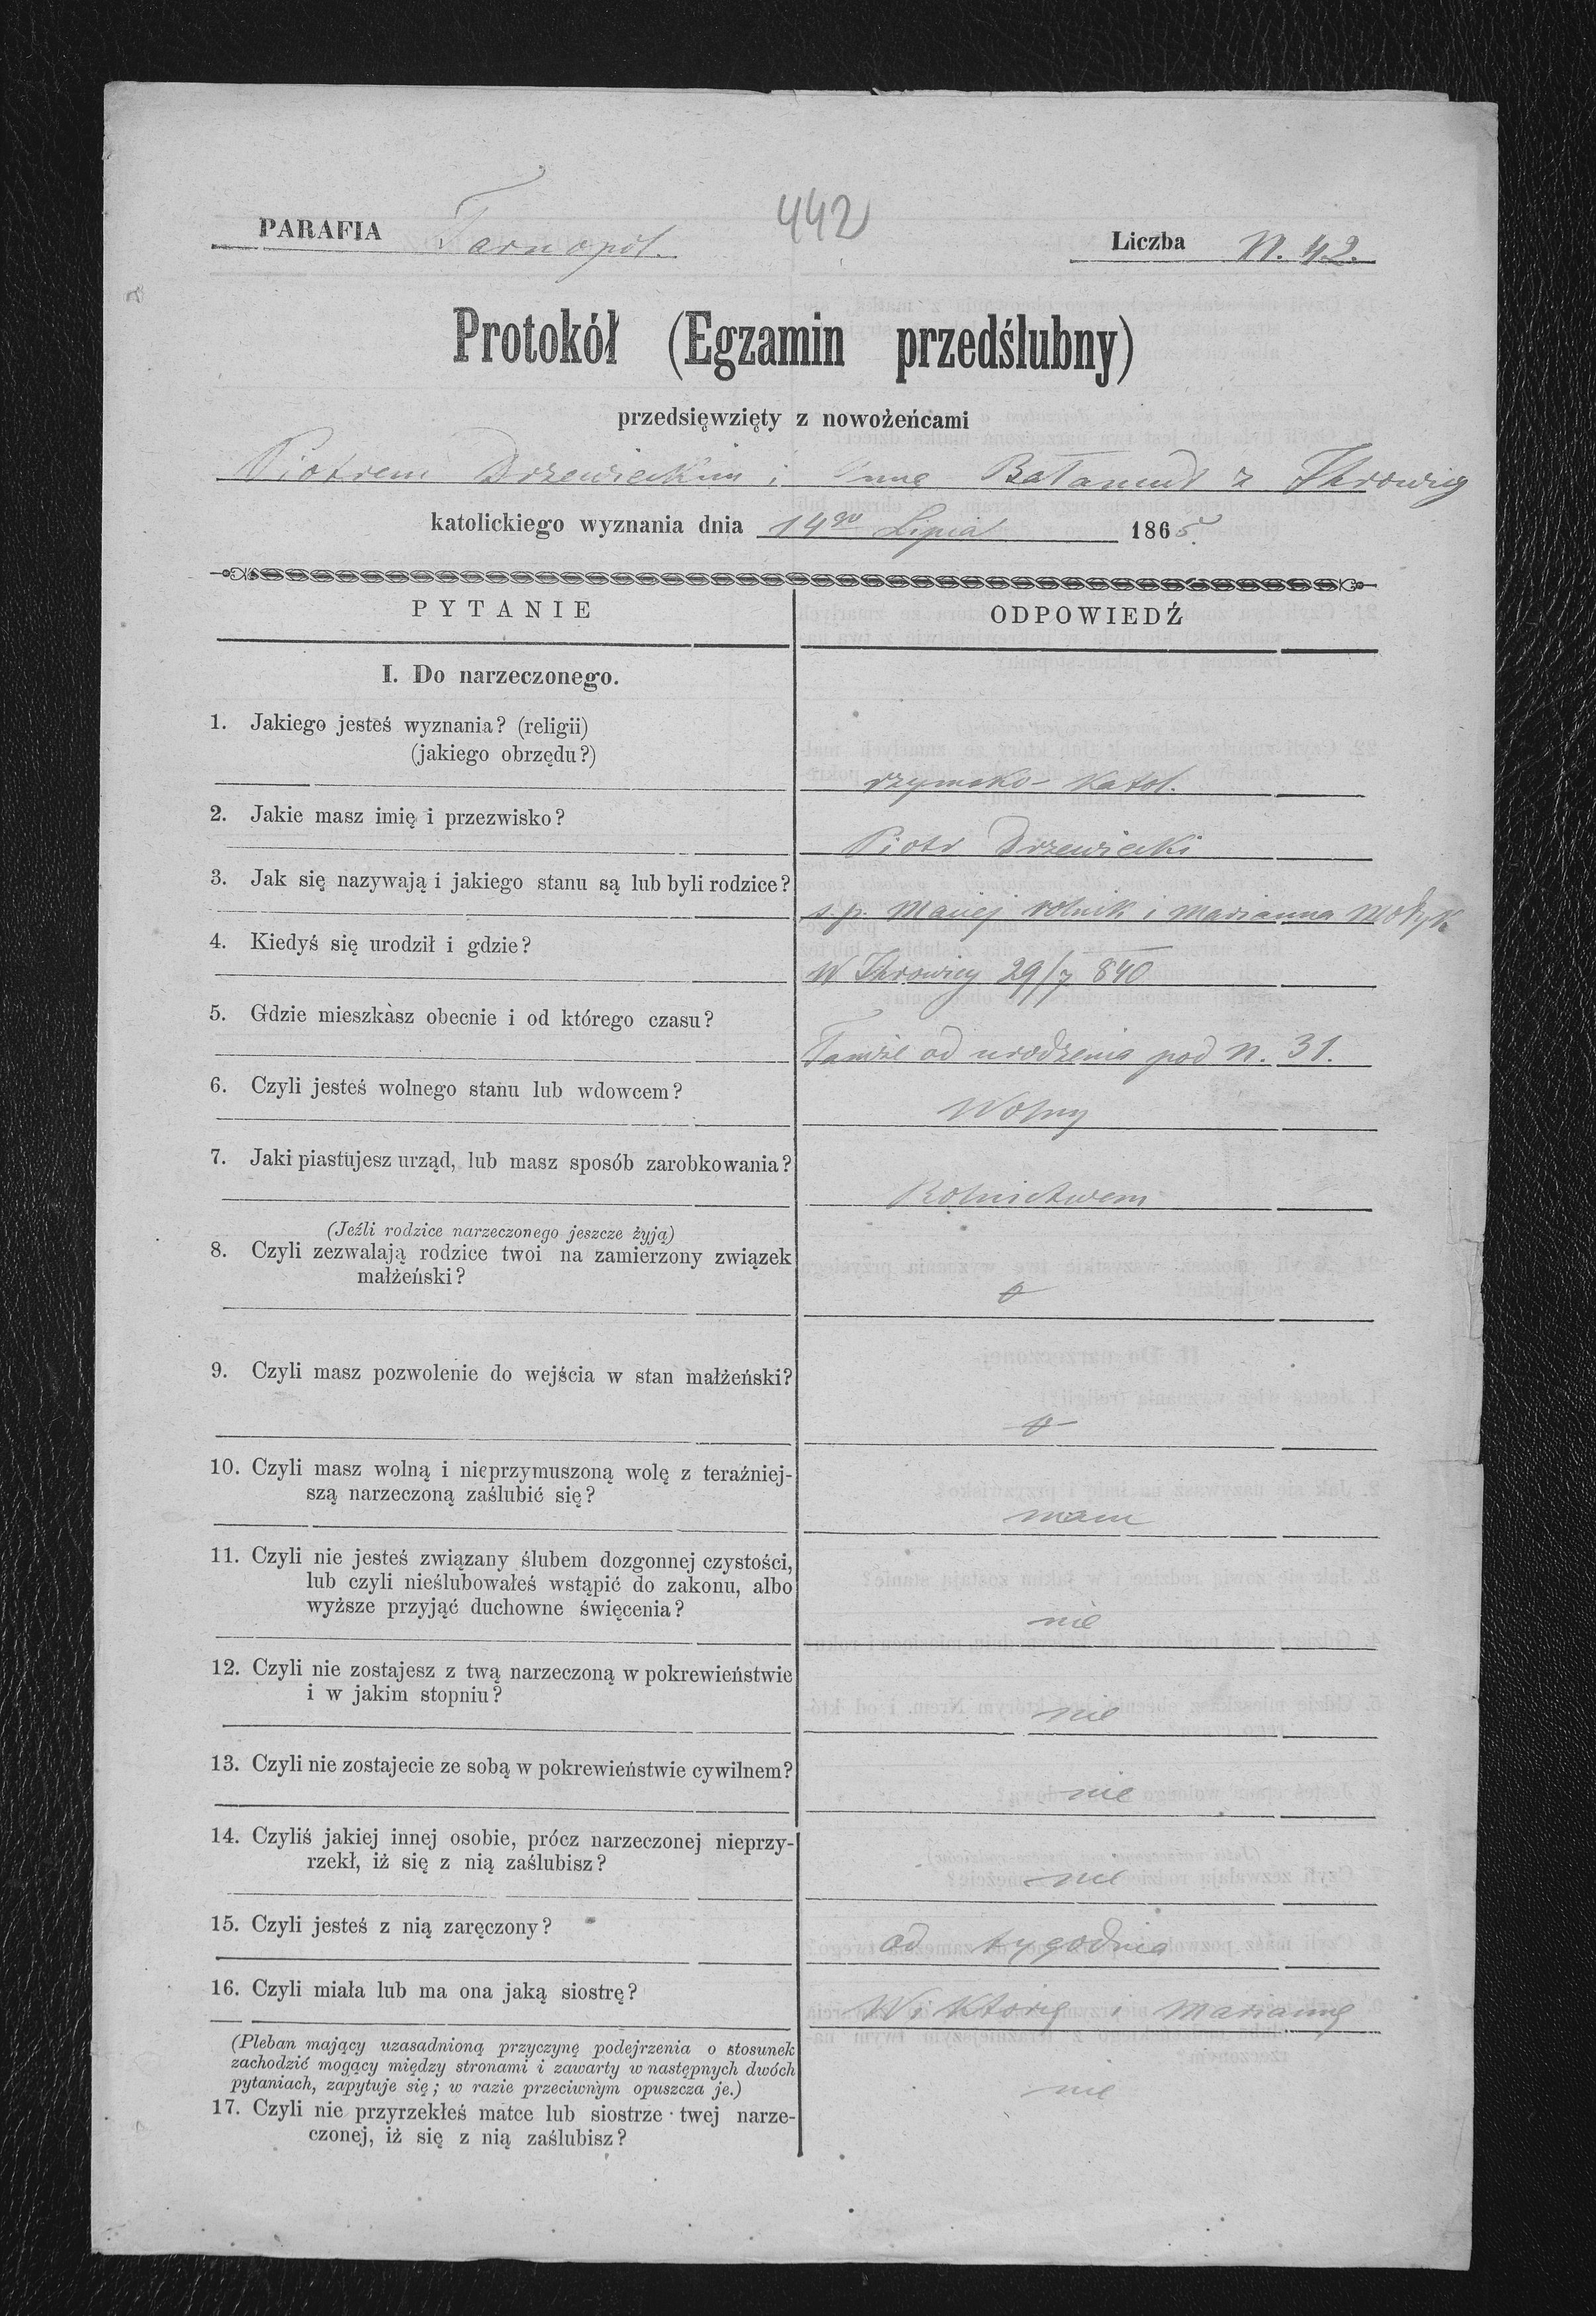 PARAFIA Tarnopol.
442
Liczba N. 42.
Protokół (Egzamin przedślubny)
przedsięwzięty z nowożeńcami
Piotrem Drzewieckim i Anną Bałamut z Ihrowicy
katolickiego wyznania dnia 14go Lipca 1865.
PYTANIE
ODPOWIEDŹ
I. Do narzeczonego.
1. Jakiego jesteś wyznania? (religii)
(jakiego obrzędu?)
rzymsko-katol.
2. Jakie masz imię i przezwisko?
Piotr Drzewiecki
3. Jak się nazywają i jakiego stanu są lub byli rodzice?
s. p. Maciej rolnik i Marianna Motyk
4. Kiedyś się urodził i gdzie?
W Ihrowicy 29/7 840
5. Gdzie mieszkasz obecnie i od którego czasu?
Tamże od urodzenia pod N. 31.
6. Czyli jesteś wolnego stanu lub wdowcem?
Wolny
7. Jaki piastujesz urząd, lub masz sposób zarobkowania?
Rolnictwem
(Jeźli rodzice narzeczonego jeszcze żyją)
8. Czyli zezwalają rodzice twoi na zamierzony związek
małżeński?
9. Czyli masz pozwolenie do wejścia w stan małżeński?
10. Czyli masz wolną i nieprzymuszoną wolę z teraźniej-
szą narzeczoną zaślubić się?
mam
11. Czyli nie jesteś związany ślubem dozgonnej czystości,
lub czyli nieślubowałeś wstąpić do zakonu, albo
wyższe przyjąć duchowne święcenia?
nie
12. Czyli nie zostajesz z twą narzeczoną w pokrewieństwie
i w jakim stopniu?
nie
13. Czyli nie zostajecie ze sobą w pokrewieństwie cywilnem?
nie
14. Czyliś jakiej innej osobie, prócz narzeczonej nieprzy-
rzekł, iż się z nią zaślubisz?
nie
15. Czyli jesteś z nią zaręczony?
od tygodnia
16. Czyli miała lub ma ona jaką siostrę?
Wiktorię i Mariannę
(Pleban mający uzasadnioną przyczynę podejrzenia o stosunek
zachodzić mogący między stronami i zawarty w następnych dwóch
pytaniach, zapytuje się; w razie przeciwnym opuszcza je.)
17. Czyli nie przyrzekłeś matce lub siostrze twej narze-
czonej, iż się z nią zaślubisz?
nie